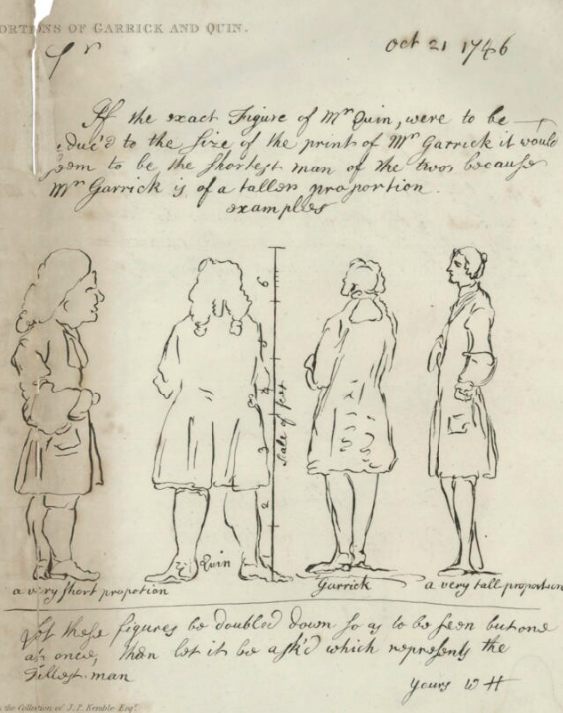 ORTIONS OF GARRICK AND QUIN.
Sr
Oct 21 1746
If the exact Figure of Mr Quin, were to be
duc'd to the size of the print of Mr Garrick it would
seem to be the shortest man of the two, because
Mr Garrick is of a taller proportion.
examples
6
5
4
3
2
Scale of feet
Quin
Garrick
a very short propotion
a very tall proportion
let these figures be doubled down so as to be seen but one
at once, then let it be ask'd which represents the
Tallest man
Yours W H
the Collection of J. P. Kemble Esqr.